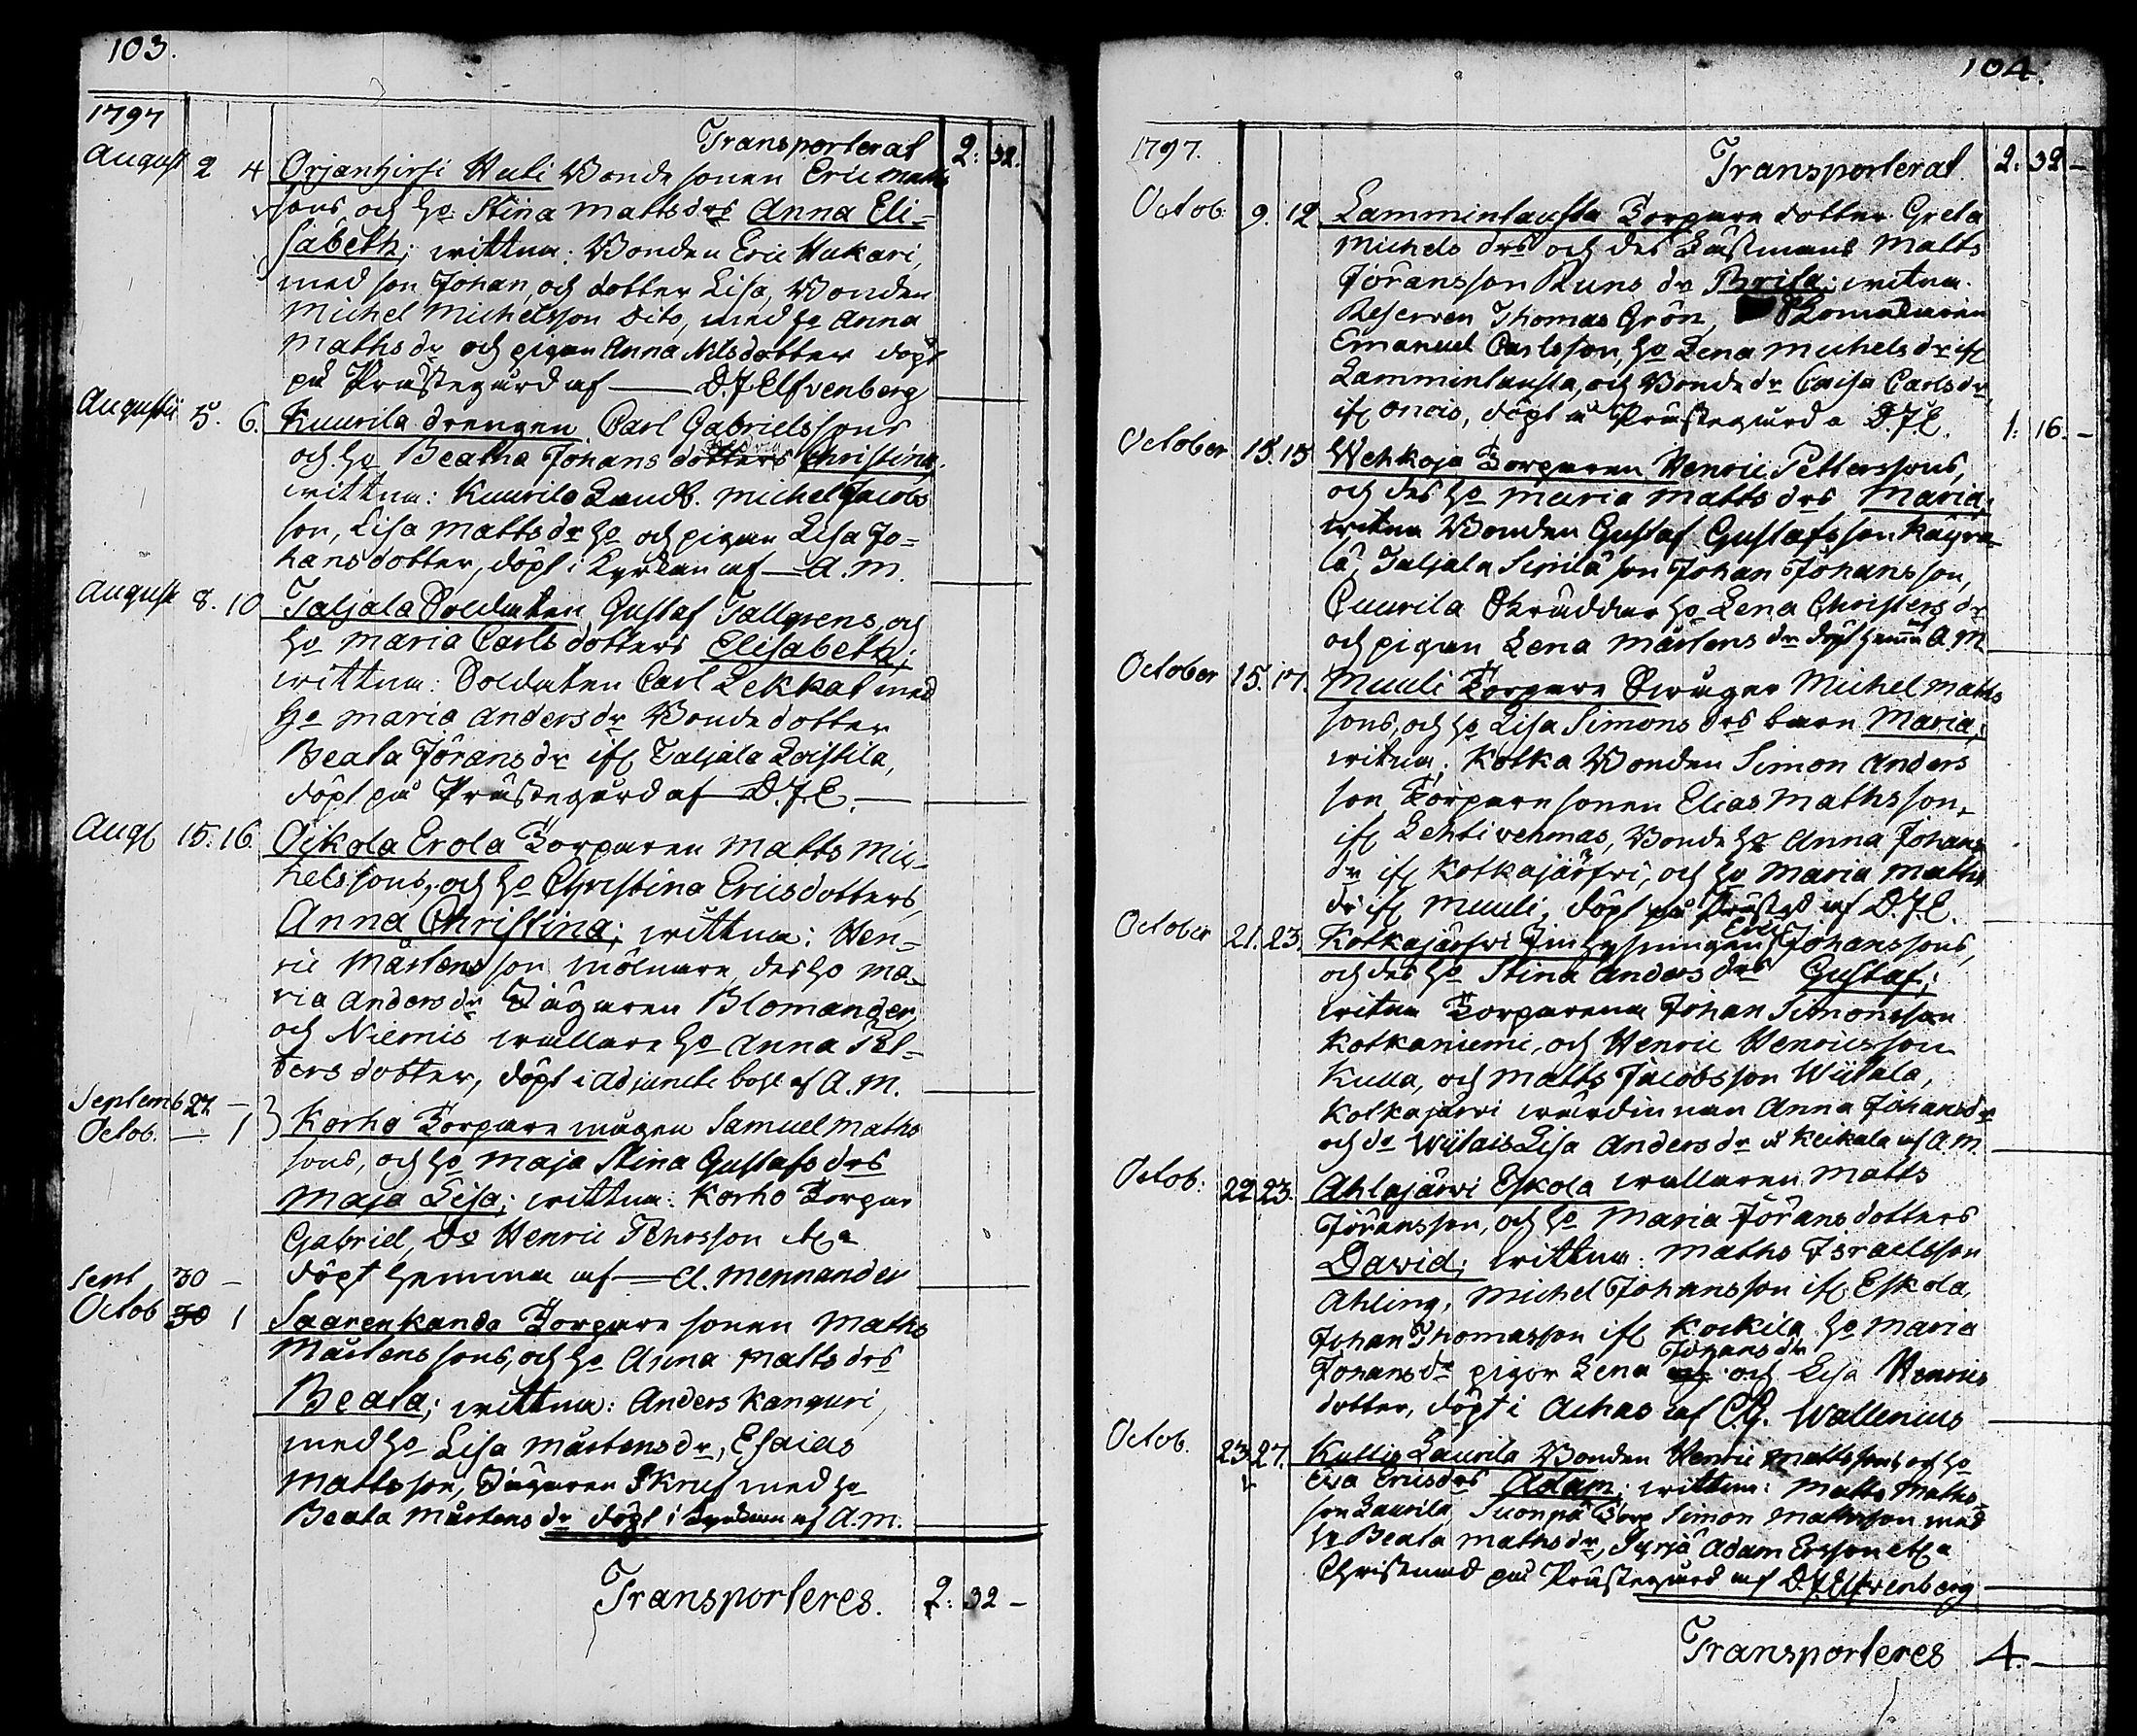 103.
1797
Transporterat 2: 32.
August 2 4 Orjanhirsi Uuti Bonde sonen Eric Matts
sons, och ho Stina Mattsdrs Anna Eli=
sabeth; wittna: Bonden Eric Hukari,
med son Johan, och dotter Lisa, Bonden
Michel Michelsson Dito, med ho Anna
Mathsdr och pigan Anna Nilsdotter döpt
på Prästegård af — D.J. Elfvenberg
Augusti 5. 6. Kuurila drengen Carl Gabrielssons
och ho Beatha Johans dotters Christina,
wittna: Kuurila Landb. Michel Jacobs
son, Lisa Mattsdr ho och pigan Lisa Jo=
hansdotter, döpt i Kyrkan af — A.M.
August 8. 10 Taljala Soldaten Gustaf Tallgrens, och
ho Maria Carlsdotters Elisabeth;
wittna: Soldaten Carl Lekkat med
ho Maria Andersdr Bondedotter
Beata Jöransdr ifr Taljala Knistila,
döpt på Prästegård af D.J.E. —
Augt 15. 16. Oikola Erola Torparen Matts Mic=
helssons, och ho Christina Ericsdotters
Anna Christina; wittna: Hen=
ric Mårtensson Mölnare, des ho Ma=
ria Andersdr Jägaren Blomander,
och Niemis wallare ho Anna Pet=
tersdotter, döpt i Adjuncts bost af A.M.
Septemb 27 —
Octob. — 1 } Korho Torpare mågen Samuel Maths
sons, och ho Maja Stina Gustafsdrs
Maja Lisa; wittna: Korho Torpar
Gabriel, Do Henric Pehrsson etca
döpt hemma af — A. Mennander
Sept 30 —
Octob 30 1 Saarenkanda Torpare sonen Maths
Mårtenssons, och ho Anna Mattsdrs
Beata; wittna: Anders Kanguri,
med ho Lisa Mårtensdr, Esaias
Mattsson, Jägaren Skruf med ho
Beata Mårtensdr döpt i Kyrkan af A.M.
Transporteres. 2: 32 —
104.
1797.
Transporterat 2: 32 —
Octob 9. 12 Lammintausta Torpare dotter Greta
Michels drs och des Fästmans Matts
Jöransson Runs dr Brita; witna.
Reserven Thomas Grön,
Emanuel Carlsson, ho Lena Michelsdr ifr
Lammintausta, och Bondedr Caisa Carlsdr
ifr Oneis, döpt å Prästegård a D.J.E. 1: 16. —
October 15. 15 Wehkoja Torparen Henric Petterssons,
och des ho Maria Matts drs Maria;
witna Bonden Gustaf Gustafsson Käyra=
lä, Taljala Sipilä son Johan Johansson,
Cuurila Skräddar ho Lena Christersdr
och pigan Lena Mårtensdr döpt hemma af A.M
October 15. 17. Muuli Torpare Swågar Michel Maths
sons, och ho Lisa Simons drs barn Maria;
witna; Kotka Bonden Simon Anders
son Torpare sonen Elias Mathsson,
ifr Lehtivehmas, Bonde ho Anna Johans
dr ifr Kotkajärfwi, och ho Maria Maths
dr ifr Muuli, döpt på Prästegd af D.J.E.
October 21. 23. Kotkajärfwi Inhysningen Eric Johanssons,
och des ho Stina Anders drs Gustaf;
witna Torparena Johan Simonsson
Kotkaniemi, och Henric Henricsson
Kulla, och Matts Jacobsson Wiitala,
Kotkajärwi wärdinnan Anna Johansdr
och do Wiitais Lisa Andersdr å Keikala af A.M.
Octob: 22 23. Ahlajärwi Eskola wallaren Matts
Jöransson, och ho Maria Jöransdotters
David; wittna: Maths Israelsson
Ahling, Michel Johansson ifr Eskola,
Johan Thomasson ifr Kockila, ho Maria
Johansdr pigor Lena Johansdr och Lisa Henrics
dotter, döpt i Achas af C.G. Wallenius
Octob. 23. 27. Kullis Laurila Bonden Henric Mattssons och ho
Ewa Ericsdrs Adam; wittna: Matts Maths=
son Laurila, Suonpä Torp Simon Mathsson med
ho Beata Mathsdr, Syrjä Adam Ersson etca
Christnad på Prästegård af D.J. Elfvenberg
Transporteres 4. —